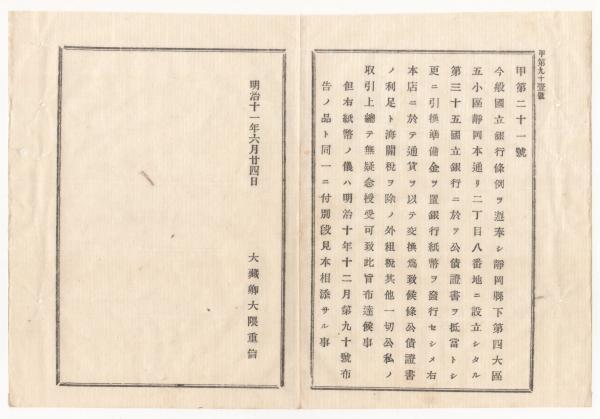 甲第九十壹號
甲第二十一號
今般國立銀行條例ヲ遵奉シ靜岡縣下第四大區
五小區靜岡本通リ二丁目八番地ニ設立シタル
第三十五國立銀行ニ於ヲ公債證書ヲ抵當トシ
更ニ引換準備金ヲ置銀行紙幣ヲ發行セシメ右
本店ニ於テ通貨ヲ以テ交換爲致候條公債證書
ノ利足ト海關稅ヲ除ノ外租稅其他一切公私ノ
取引上總テ無疑念授受可致此旨布達候事
但右紙幣ノ儀ハ明治十年十二月第九十號布
告ノ品ト同一ニ付別段見本相添サル事
明治十一年六月廿四日
大藏卿大隈重信